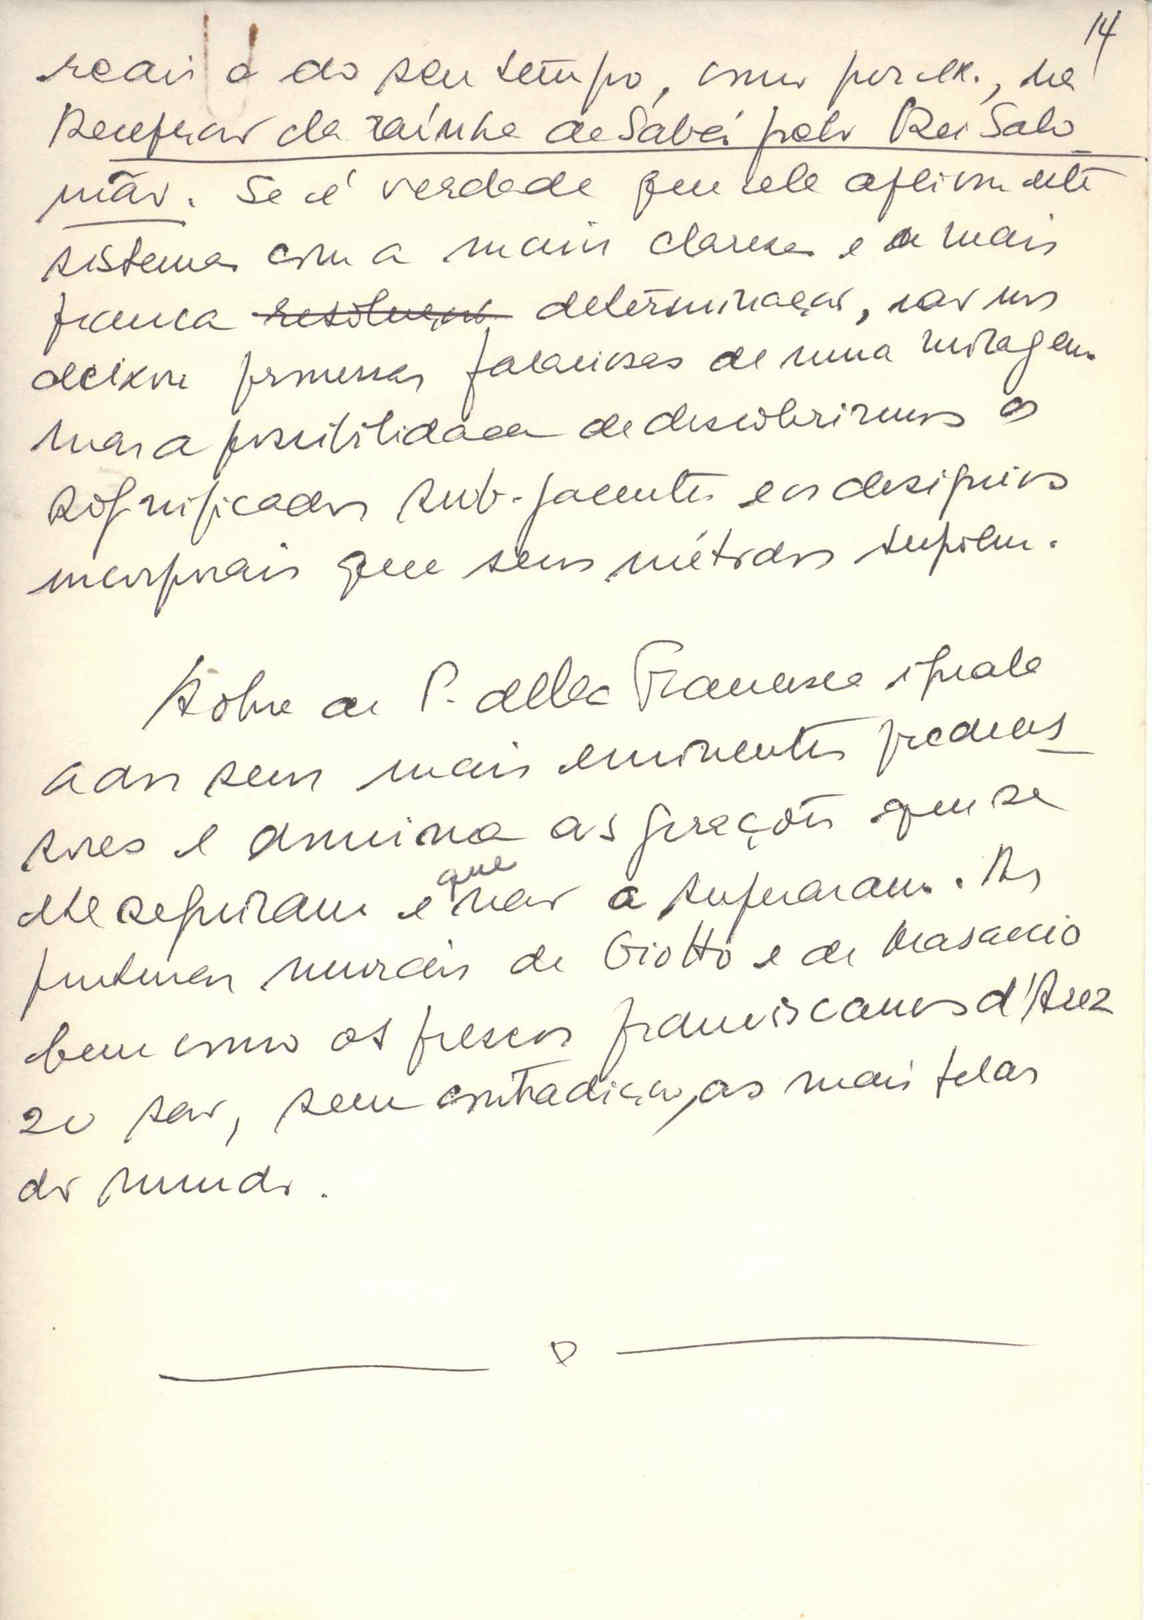 14
reais e do seu tempo, como por ex., na
Recepção da rainha de Sabá pelo Rei Salo
mão. Se é verdade que ele aplicou este
sistema com a mais clareza e a mais
franca resolução determinação, não nos
deixou promessas falaciosas de uma miragem
mas a possibilidade de descobrirmos os
significados sub-jacentes e os desígnios
incorporais que seus métodos supõem.
A obra de P. della Francesca iguala
a dos seus mais eminentes predeces
sores e domina as gerações que se
lhe seguiram e que não a superaram. As
pinturas murais de Giotto e de Masaccio
bem como os frescos franciscanos d'Arez
zo são, sem contradição, as mais belas
do mundo.